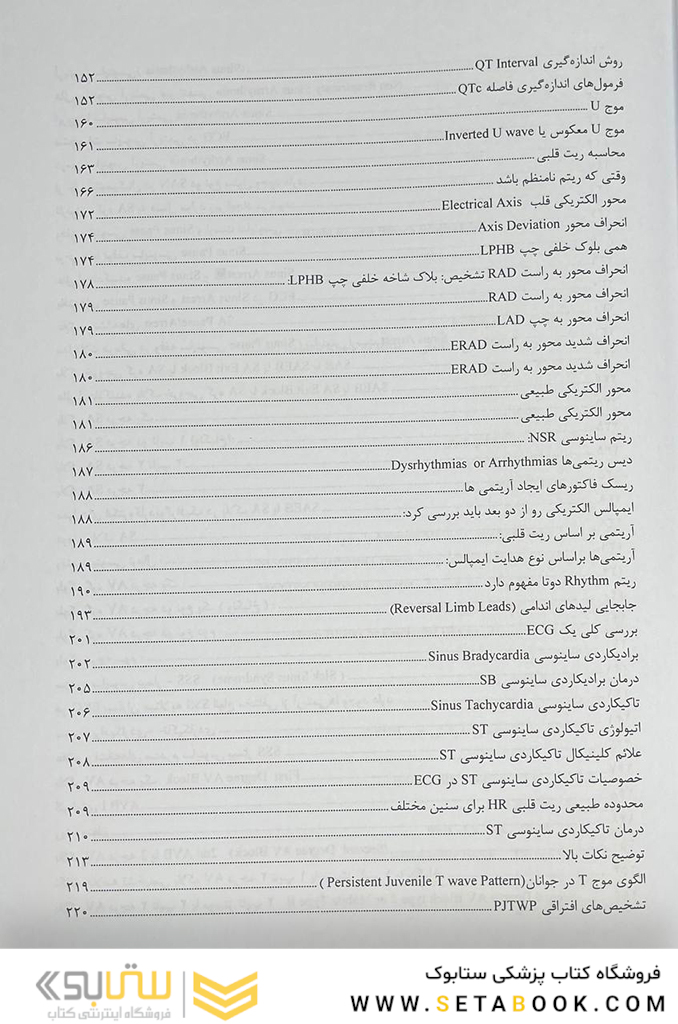 روش اندازه‌گیری QT Interval ........ ۱۵۲
فرمول‌های اندازه‌گیری فاصله QTc ........ ۱۵۲
موج U ........ ۱۶۰
موج U معکوس یا Inverted U wave ........ ۱۶۱
محاسبه ریت قلبی ........ ۱۶۳
وقتی که ریتم نامنظم باشد ........ ۱۶۶
محور الکتریکی قلب Electrical Axis ........ ۱۷۲
انحراف محور Axis Deviation ........ ۱۷۴
همی بلوک خلفی چپ LPHB ........ ۱۷۴
انحراف محور به راست RAD تشخیص: بلاک شاخه خلفی چپ LPHB: ........ ۱۷۸
انحراف محور به راست RAD ........ ۱۷۹
انحراف محور به چپ LAD ........ ۱۷۹
انحراف شدید محور به راست ERAD ........ ۱۸۰
انحراف شدید محور به راست ERAD ........ ۱۸۰
محور الکتریکی طبیعی ........ ۱۸۱
محور الکتریکی طبیعی ........ ۱۸۱
ریتم ساینوسی NSR: ........ ۱۸۶
دیس ریتمی‌ها Dysrhythmias or Arrhythmias ........ ۱۸۷
ریسک فاکتورهای ایجاد آریتمی ها ........ ۱۸۸
ایمپالس الکتریکی رو از دو بعد باید بررسی کرد: ........ ۱۸۸
آریتمی بر اساس ریت قلبی: ........ ۱۸۹
آریتمی‌ها براساس نوع هدایت ایمپالس: ........ ۱۸۹
ریتم Rhythm دوتا مفهوم دارد ........ ۱۹۰
جابجایی لیدهای اندامی (Reversal Limb Leads) ........ ۱۹۳
بررسی کلی یک ECG ........ ۲۰۱
برادیکاردی ساینوسی Sinus Bradycardia ........ ۲۰۲
درمان برادیکاردی ساینوسی SB ........ ۲۰۵
تاکیکاردی ساینوسی Sinus Tachycardia ........ ۲۰۶
اتیولوژی تاکیکاردی ساینوسی ST ........ ۲۰۷
علائم کلینیکال تاکیکاردی ساینوسی ST ........ ۲۰۸
خصوصیات تاکیکاردی ساینوسی ST در ECG ........ ۲۰۹
محدوده طبیعی ریت قلبی HR برای سنین مختلف ........ ۲۰۹
درمان تاکیکاردی ساینوسی ST ........ ۲۱۰
توضیح نکات بالا ........ ۲۱۳
الگوی موج T در جوانان(Persistent Juvenile T wave Pattern ) ........ ۲۱۹
تشخیص‌های افتراقی PJTWP ........ ۲۲۰
فروشگاه کتاب پزشکی ستابوک
WWW.SETABOOK.COM
ستابوک
فروشگاه اینترنتی کتاب